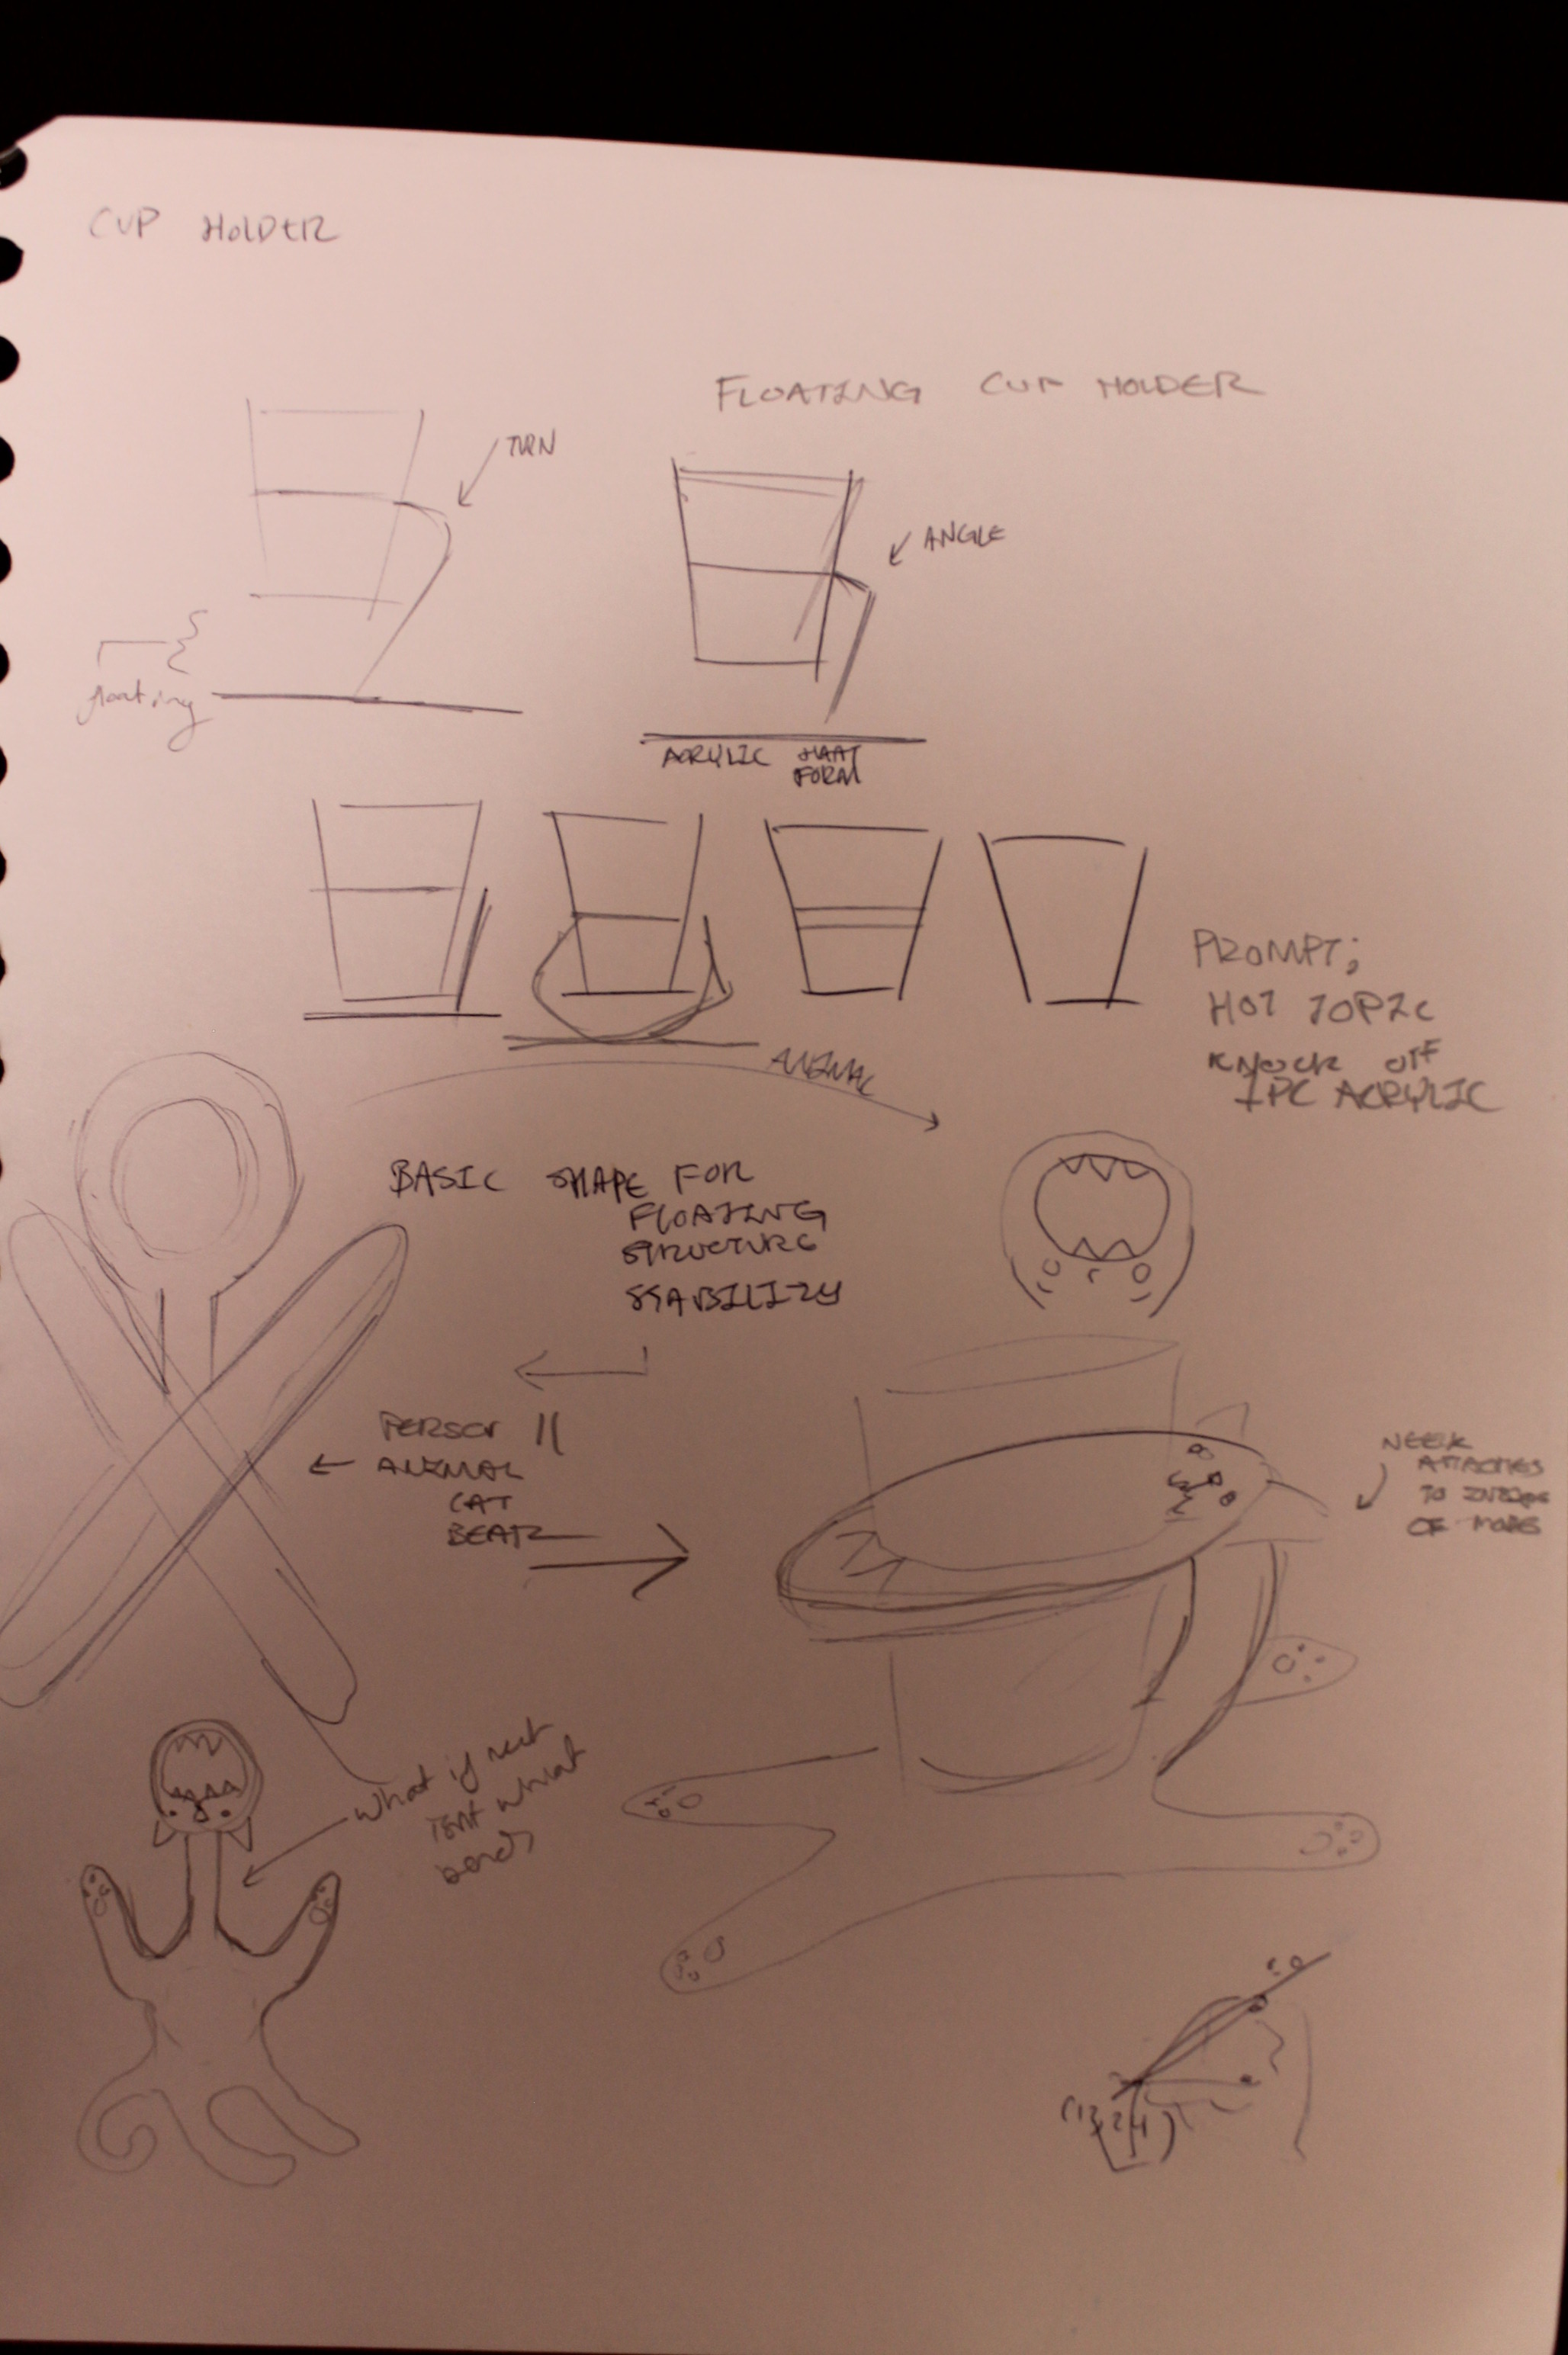 CUP HOLDER
FLOATING CUP HOLDER
TURN
ANGLE
floating
ACRYLIC HEAT
FORM
PROMPT;
HOT TOPIC
KNOCK OFF
1PC ACRYLIC
ANIMAL
BASIC SHAPE FOR
FLOATING
STRUCTURE
STABILITY
PERSON ||
ANIMAL
CAT
BEAR
NECK
ATTACHES
TO
OF
what if neck
isnt what
bends